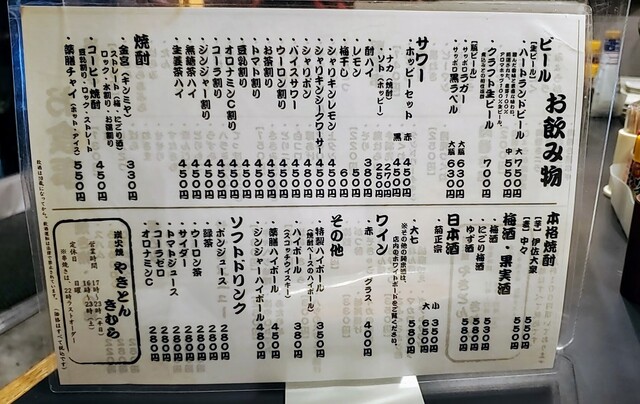 お飲み物
ビール
【生ビール】
・ハートランドビール 大 750円
中 550円
・クラフト生ビール 700円
【瓶ビール】
・サッポロラガー 大瓶 630円
・サッポロ黒ラベル 大瓶 630円
サワー
・ホッピーセット 赤 450円
黒 450円
ナカ(焼酎) 270円
ソト(ホッピー)
・酎ハイ 350円
・レモン
・梅干し
・シャリキンレモン 450円
・シャリキンシークワーサー 450円
・シャリキンホッピー
・バイスサワー 450円
・ウーロン割り 450円
・お茶割り 450円
・トマト割り 450円
・豆乳割り 450円
・オロナミンC割り 450円
・コーラ割り 450円
・ジンジャー割り 450円
・無糖茶ハイ 450円
・生姜茶ハイ 450円
焼酎
・金宮(キンミヤ) 330円
・コーヒー焼酎 450円
豆乳割り・ロック・ストレート
・薬膳チャイ(ホット・アイス) 550円
本格焼酎
【芋】伊佐大泉 550円
【麦】中々 550円
梅酒・果実酒
・梅酒 530円
・にごり梅酒 580円
・ゆず酒 550円
日本酒
・菊正宗 小 350円
大 650円
・大七 580円
※その他の純米酒は、店内のホワイトボードをご覧ください。
ワイン
・赤 グラス 400円
その他
・特製ハイボール 350円
(焼酎ベースのハイボール)
・ハイボール 380円
(スコッチウイスキー)
・薬膳ハイボール 450円
・ジンジャーハイボール 480円
ソフトドリンク
・ポンジュース 250円
・緑茶 280円
・ウーロン茶 280円
・サイダー 280円
・トマトジュース 280円
・コーラゼロ 280円
・オロナミンC 280円
炭火焼 やきとん きむら
営業時間 17時〜23時(平日)
16時〜23時(土)
※串焼きは22時ラストオーダー
定休日 日曜
(価格はすべて税込です)